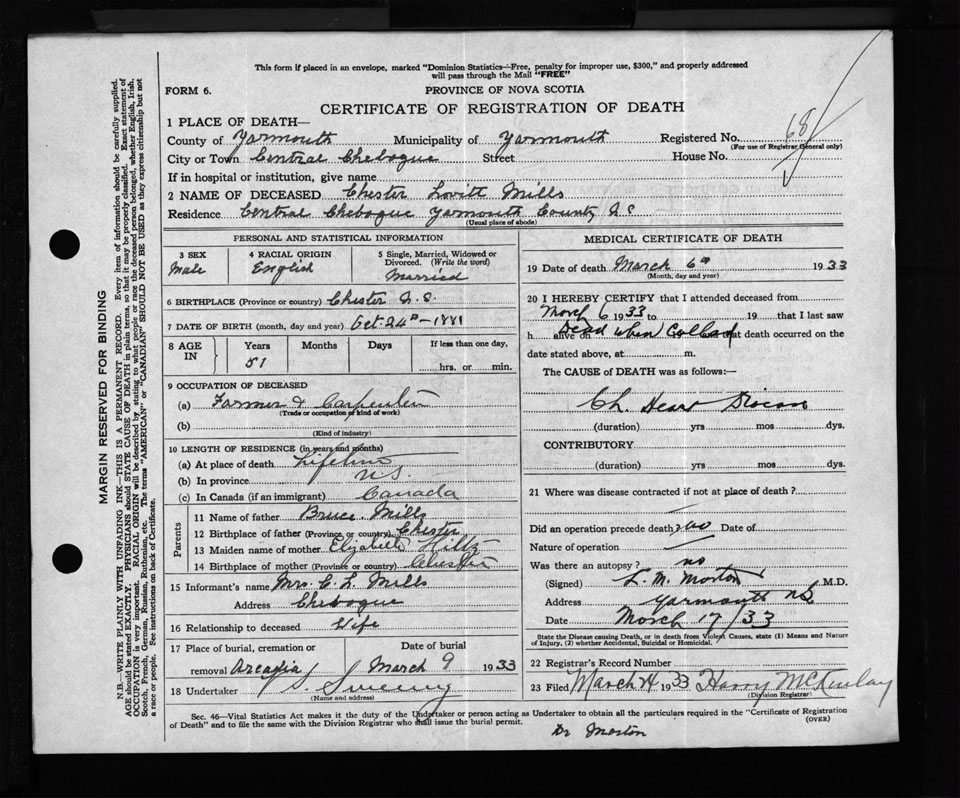 This form if placed in an envelope, marked "Dominion Statistics—Free, penalty for improper use, $300," and properly addressed
will pass through the Mail "FREE"
FORM 6. PROVINCE OF NOVA SCOTIA
CERTIFICATE OF REGISTRATION OF DEATH
1 PLACE OF DEATH—
County of Yarmouth Municipality of Yarmouth Registered No. 68
(For use of Registrar General only)
City or Town Central Chebogue Street House No.
If in hospital or institution, give name
2 NAME OF DECEASED Chester Lovitt Mills
Residence Central Chebogue Yarmouth County N.S.
(Usual place of abode)
PERSONAL AND STATISTICAL INFORMATION
3 SEX 4 RACIAL ORIGIN 5 Single, Married, Widowed or
Divorced. (Write the word)
Male English Married
6 BIRTHPLACE (Province or country) Chester N.S.
7 DATE OF BIRTH (month, day and year) Oct. 24th—1881
8 AGE IN Years Months Days If less than one day,
51 hrs. or min.
9 OCCUPATION OF DECEASED
(a) Farmer & Carpenter
(Trade or occupation of kind of work)
(b)
(Kind of industry)
10 LENGTH OF RESIDENCE (in years and months)
(a) At place of death Lifetime
(b) In province N.S.
(c) In Canada (if an immigrant) Canada
Parents
11 Name of father Bruce Mills
12 Birthplace of father (Province or country) Chester
13 Maiden name of mother Elizabeth Hiltz
14 Birthplace of mother (Province or country) Chester
15 Informant's name Mrs. C. L. Mills
Address Chebogue
16 Relationship to deceased Wife
17 Place of burial, cremation or Date of burial
removal Arcadia March 9 1933
18 Undertaker S. Sweeny
(Name and address)
MEDICAL CERTIFICATE OF DEATH
19 Date of death March 6th 1933
(Month, day and year)
20 I HEREBY CERTIFY that I attended deceased from
March 6 1933 to 19 that I last saw
h alive on Dead when Called 19 that death occurred on the
date stated above, at m.
The CAUSE of DEATH was as follows:—
Ch. Heart Disease
(duration) yrs mos dys.
CONTRIBUTORY
(duration) yrs mos dys.
21 Where was disease contracted if not at place of death?
Did an operation precede death? no Date of
Nature of operation
Was there an autopsy? no
(Signed) L. M. Morton M.D.
Address Yarmouth NS
Date March 17/33
State the Disease causing Death, or in death from Violent Causes, state (1) Means and Nature
of Injury, (2) whether Accidental, Suicidal or Homicidal.
22 Registrar's Record Number
23 Filed March 24 1933 Harry McKinlay
(Division Registrar)
Sec. 46—Vital Statistics Act makes it the duty of the Undertaker or person acting as Undertaker to obtain all the particulars required in the "Certificate of Registration
of Death" and to file the same with the Division Registrar who shall issue the burial permit. (OVER)
Dr Morton
MARGIN RESERVED FOR BINDING
N.B.—WRITE PLAINLY WITH UNFADING INK—THIS IS A PERMANENT RECORD. Every item of information should be carefully supplied.
AGE should be stated EXACTLY. PHYSICIANS should STATE CAUSE OF DEATH in plain terms, so that it may be properly classified. Exact statement of
OCCUPATION is very important. RACIAL ORIGIN will be described by stating to what people or race the deceased person belonged, whether English, Irish,
Scotch, French, German, Russian, Ruthenian, etc. The terms "AMERICAN" or "CANADIAN" SHOULD NOT BE USED as they express citizenship but not
a race or people. See instructions on back of Certificate.